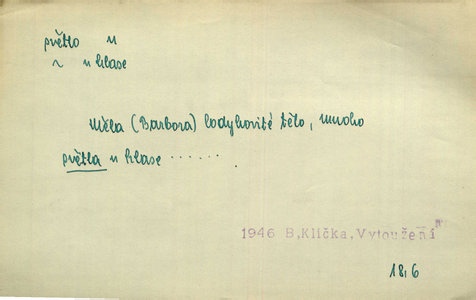 světlo u
~ v hlase
Měla (Barbora) lodyhovité tělo, mnoho
světla v hlase ......
1946 B.Klička, Vytoužená
18,6